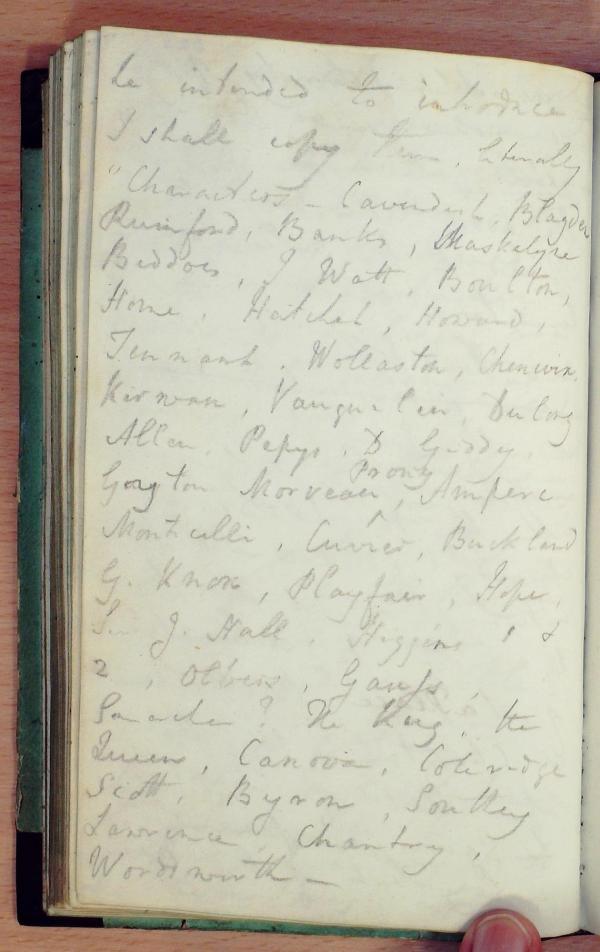 he intended to introduce
I shall copy them, literally
"Characters – Cavendish, Blagden
Rumford, Banks, Maskelyne
Beddoes, J Watt, Boulton,
Home, Hatchet, Howard,
Tennant, Wollaston, Chenevix,
Kirwan, Vauquelin, Dulong
Allen, Pepys, D Giddy,
Prony
Guyton Morveau, Ampere
Monticelli, Cuvier, Buckland
G. Knox, Playfair, Hope,
Sir J. Hall, Higgins 1 &
2, Olbers, Gauss,
? The King, the
Queen, Canova, Coleridge
Scott, Byron, Southey
Lawrence, Chantry,
Wordsworth –